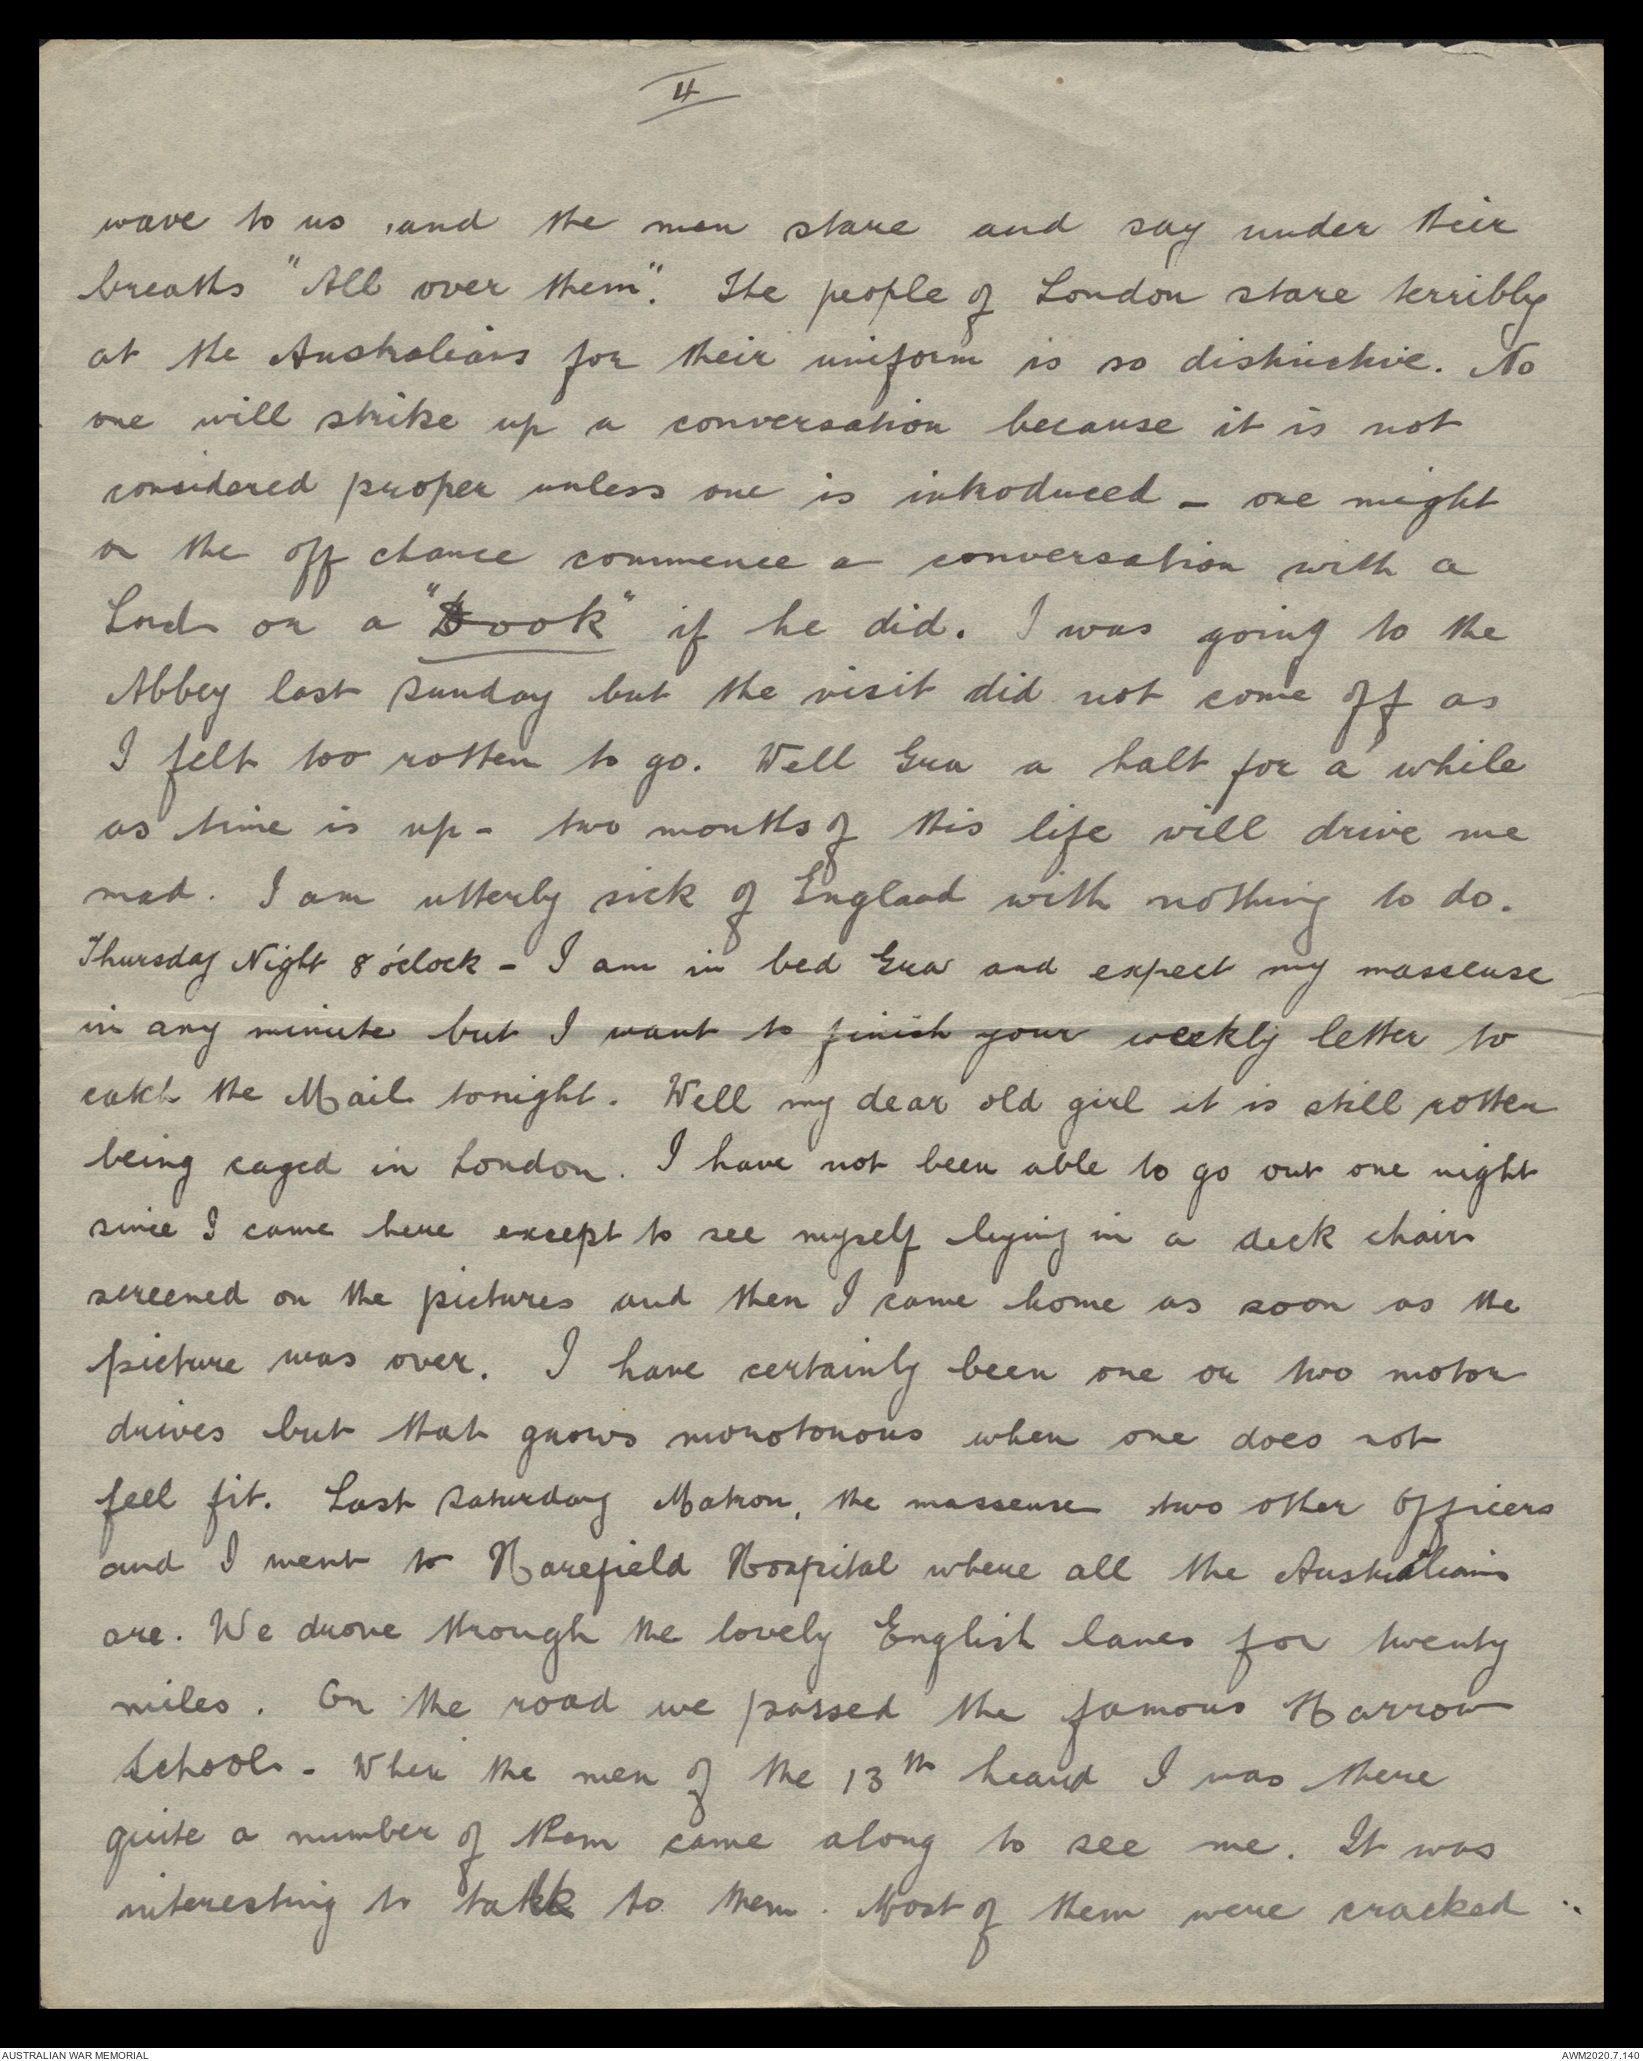 4
wave to us, and the men stare and say under their
breaths "All over them". The people of London stare terribly
at the Australians for their uniform is so distinctive. No
one will strike up a conversation because it is not
considered proper unless one is introduced - one might
on the off chance commence a conversation with a
Lord or a "Dook" if he did. I was going to the
Abbey last Sunday but the visit did not come off as
I felt too rotten to go. Well Gra a halt for a while
as time is up - two months of this life will drive me
mad. I am utterly sick of England with nothing to do.
Thursday Night 8 o'clock - I am in bed Gra and expect my masseuse
in any minute but I want to finish your weekly letter to
catch the Mail tonight. Well my dear old girl it is still rotten
being caged in London. I have not been able to go out one night
since I came here except to see myself lying in a deck chair
screened on the pictures and then I came home as soon as the
picture was over. I have certainly been one or two motor
drives but that grows monotonous when one does not
feel fit. Last Saturday Matron, the masseuse two other Officers
and I went to Harefield Hospital where all the Australians
are. We drove through the lovely English lanes for twenty
miles. On the road we passed the famous Harrow
School - When the men of the 13th heard I was there
quite a number of them came along to see me. It was
interesting to talk to them. Most of them were cracked
AUSTRALIAN WAR MEMORIAL
AWM2020.7.140